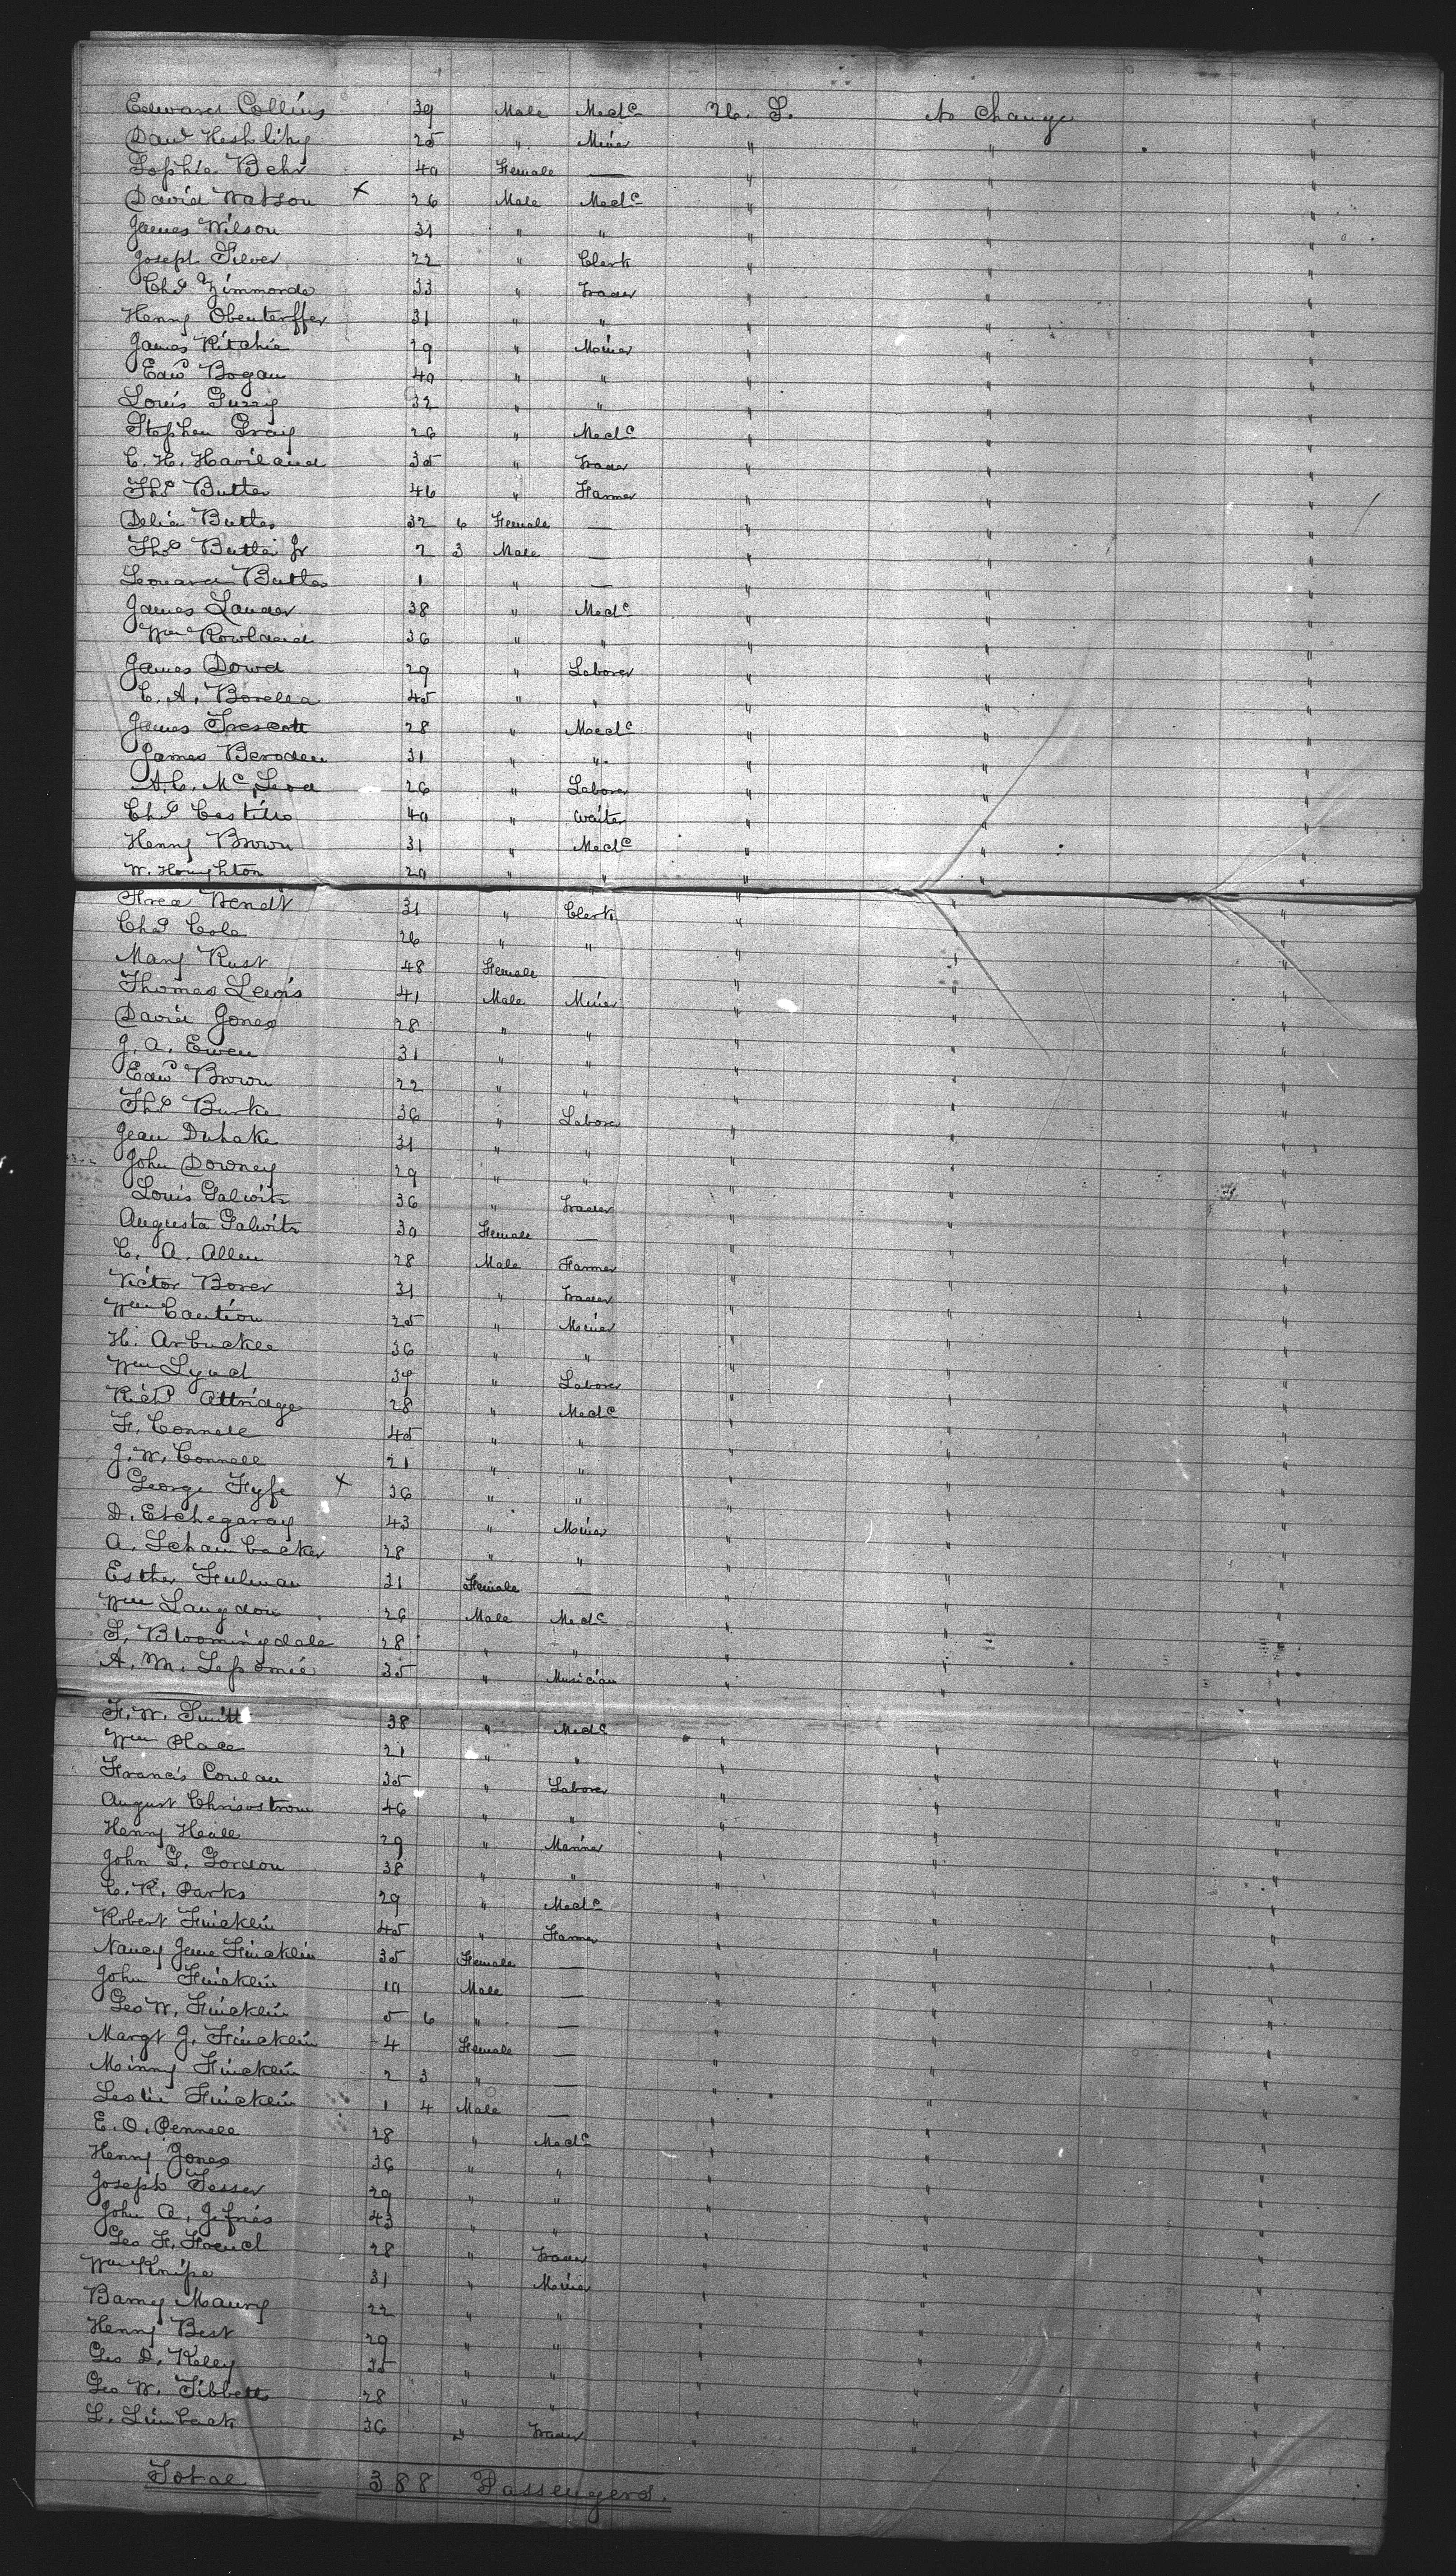 Edward Collins 39 Male Mechc U. S. No Change "
Davd Heshlihy 25 " Miner " " "
Sophie Behr 40 Female — " " "
David Watson x 26 Male Mechc " " "
James Wilson 31 " " " " "
Joseph Silver 22 " Clerk " " "
Chs Zimmorde 33 " Trader " " "
Henry Obenterffer 31 " " " " "
James Ritchie 29 " Miner " " "
Edwd Bogan 40 " " " " "
Louis 32 " " " " "
Stephen Gray 26 " Mechc " " "
C. H. Haviland 35 " Trader " " "
Ths Butler 46 " Farmer " " "
Delia Butler 32 6 Female — " " "
Ths Butler Jr 7 3 Male — " " "
Leonard Butler 1 " — " " "
James Lander 38 " Mechc " " "
Wm Rowland 36 " " " " "
James Dowd 29 " Laborer " " "
C. A. Borella 45 " " " " "
James Trescott 28 " Mechc " " "
James Beroden 31 " " " " "
A. C. McLeod 26 " Laborer " " "
Chs Castillo 40 " Waiter " " "
Henry Brown 31 " Mechc " " "
W. Houghton 20 " " " " "
Fred Wendt 31 " Clerk " " "
Chs Cole 26 " " " " "
Mary Rust 48 Female — " " "
Thomas Lewis 41 Male Miner " " "
David Jones 28 " " " " "
J. A. Ewen 31 " " " " "
Edwd Brown 22 " " " " "
Ths Burke 36 " Laborer " " "
Jean Duhake 31 " " " " "
John Downey 29 " " " " "
Louis Galwitz 36 " Trader " " "
Augusta Galwitz 30 Female — " " "
C. A. Allen 28 Male Farmer " " "
Victor Borer 31 " Trader " " "
Wm Caution 25 " Miner " " "
H. Arbuckle 36 " " " " "
Wm Lynch 39 " Laborer " " "
Richd Attridge 28 " Mechc " " "
F. Connell 45 " " " " "
J. W. Connell 21 " " " " "
George Fyfe x 36 " " " " "
D. Etchegaray 43 " Miner " " "
A. Schambacker 28 " " " " "
Esther Fulman 31 Female — " " "
Wm Langdon 26 Male Mechc " " "
S. Bloomingdale 28 " " " " "
A. M. 35 " Musician " " "
F. W. Smith 38 " Mechc " " "
Wm Place 21 " " " " "
Francis Coulau 35 " Laborer " " "
August Chrisostrom 46 " " " " "
Henry Heill 29 " Mariner " " "
John G. Gordon 38 " " " " "
C. R. Parks 29 " Mechc " " "
Robert Fincklin 45 " Farmer " " "
Nancy Jane Fincklin 35 Female — " " "
John Fincklin 10 Male — " " "
Geo W. Fincklin 5 6 " — " " "
Margt J. Fincklin 4 Female — " " "
Minny Fincklin 2 3 " — " " "
Leslie Fincklin 1 4 Male — " " "
E. O. Pennell 28 " Mechc " " "
Henry Jones 36 " " " " "
Joseph Tesser 29 " " " " "
John A. Jefries 43 " " " " "
Geo F. French 28 " Trader " " "
Wm Knipe 31 " Miner " " "
Barney Maury 22 " " " " "
Henry Best 29 " " " " "
Geo D. Kelly 35 " " " " "
Geo W. Tibbetts 28 " " " " "
L. Limback 36 " Trader " " "
Total 388 Passengers.